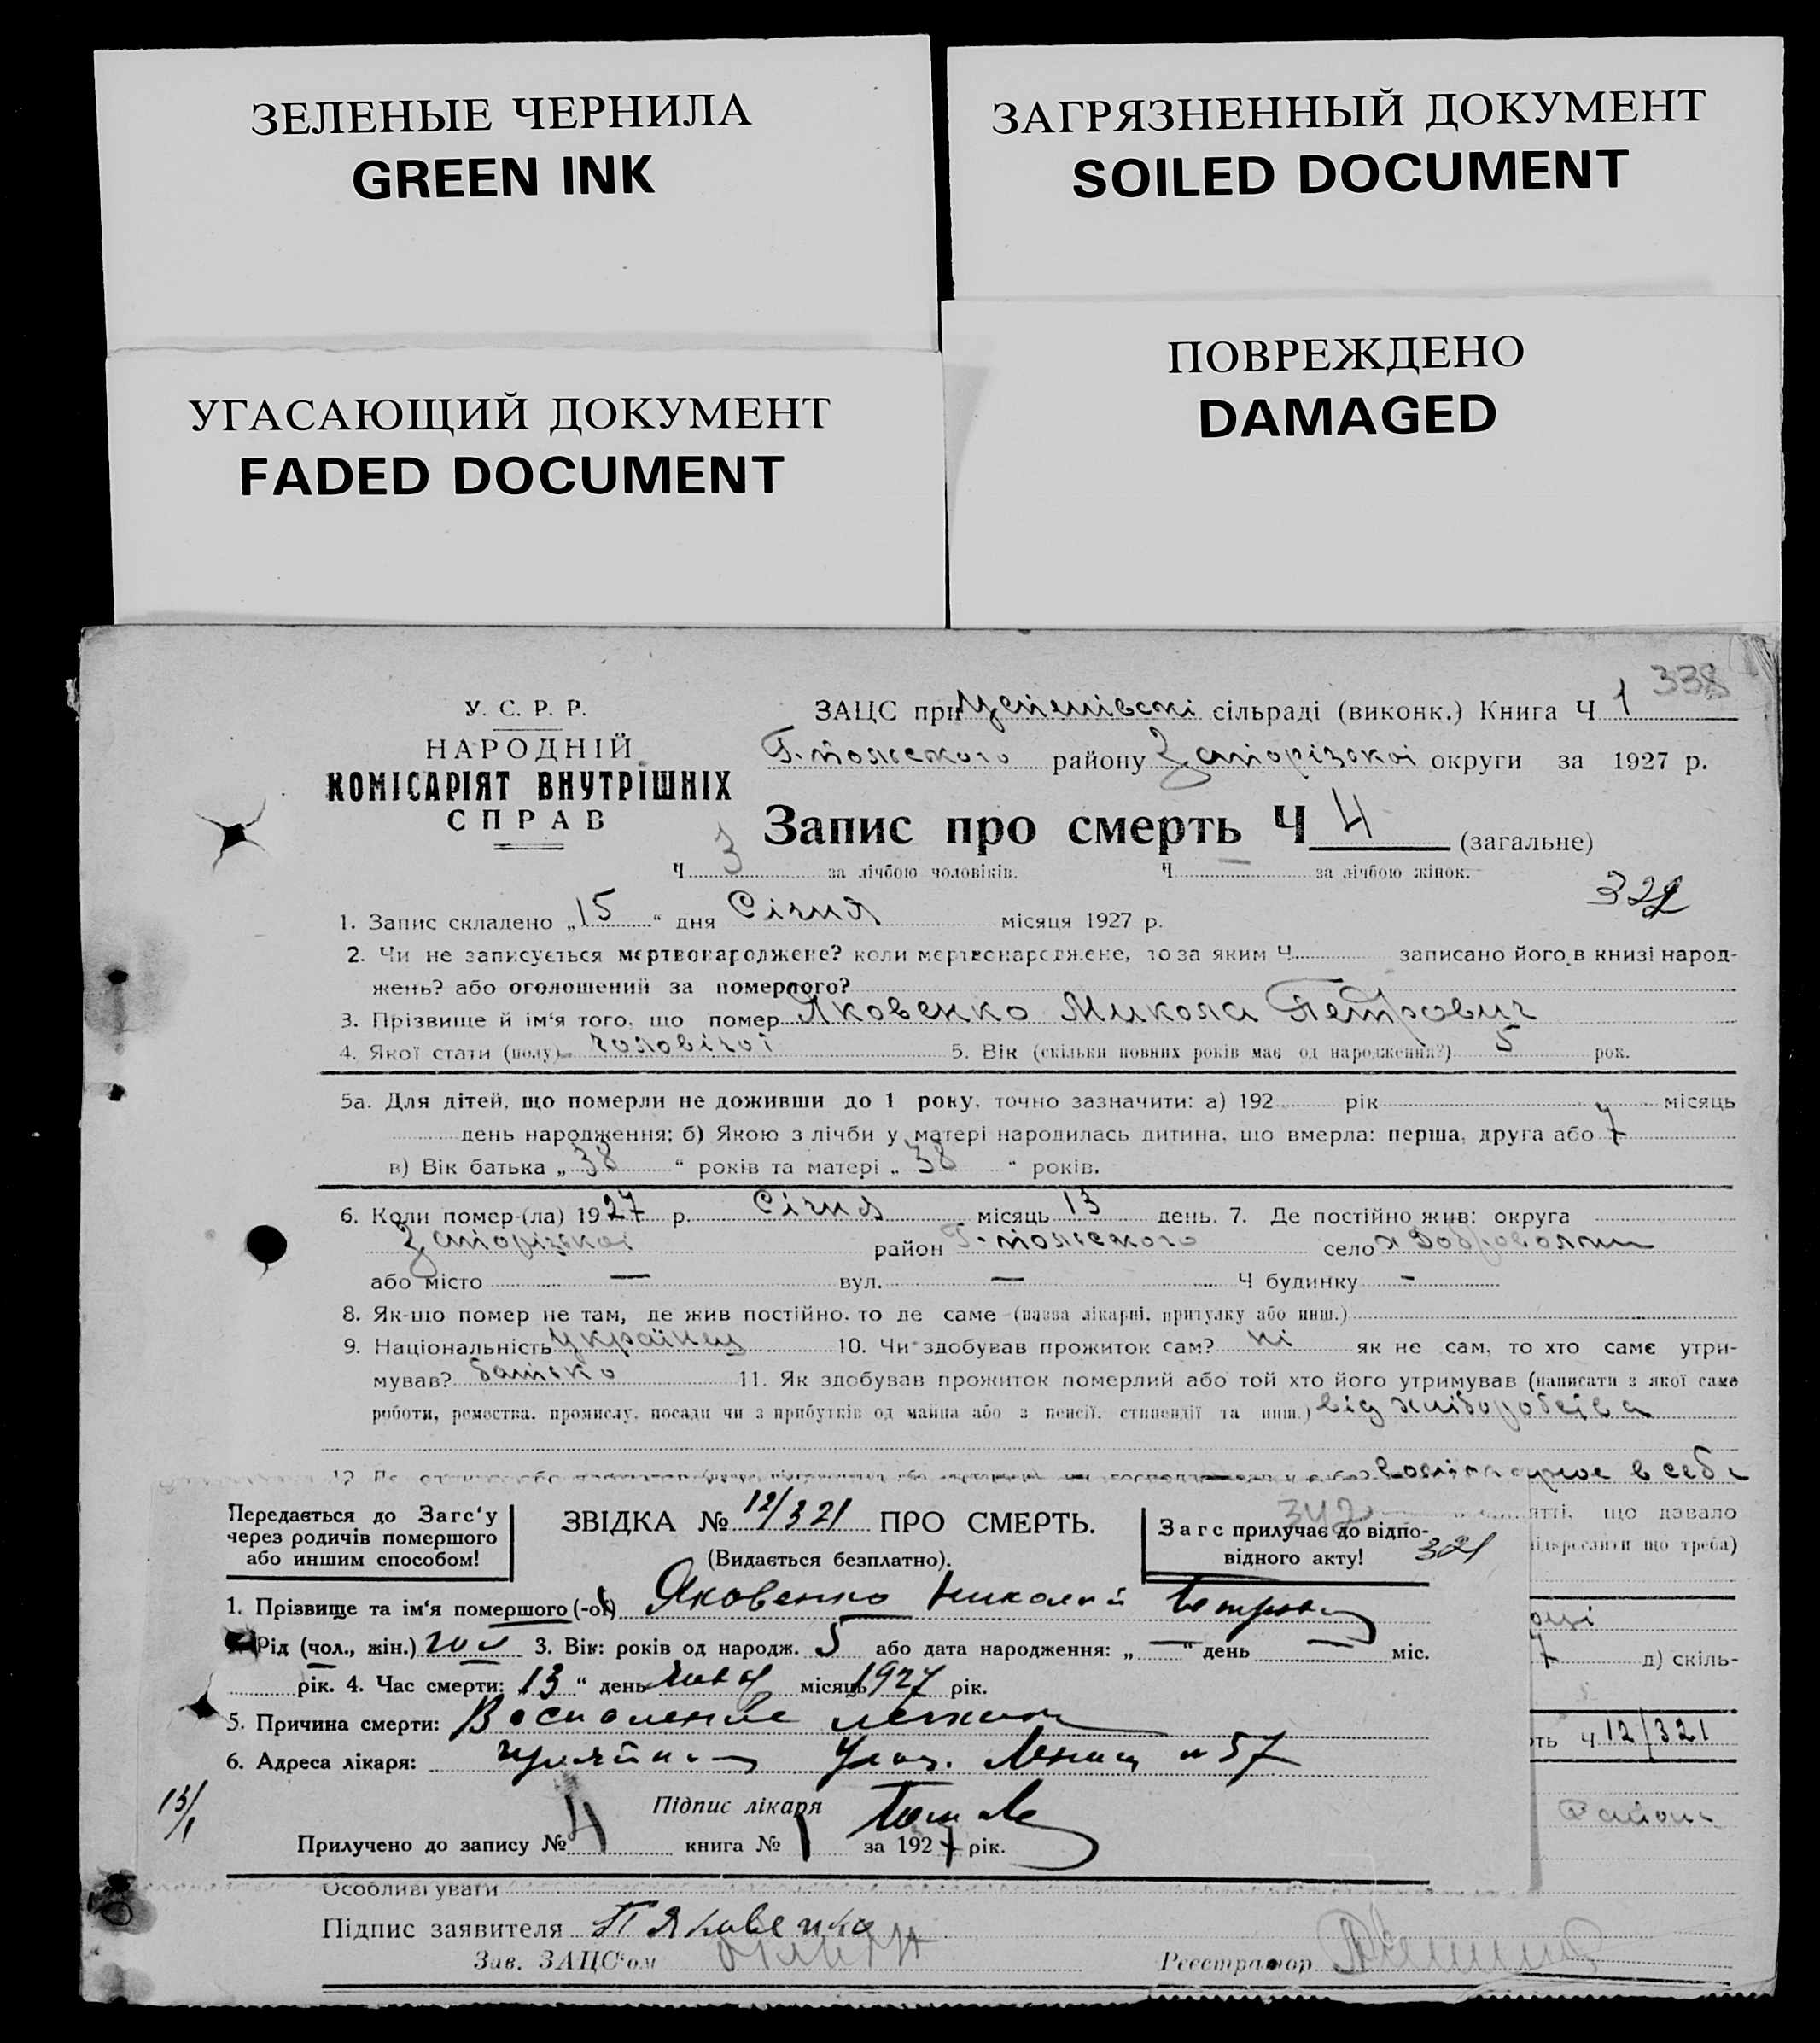 ЗЕЛЕНЫЕ ЧЕРНИЛА
GREEN INK
ЗАГРЯЗНЕННЫЙ ДОКУМЕНТ
SOILED DOCUMENT
УГАСАЮЩИЙ ДОКУМЕНТ
FADED DOCUMENT
ПОВРЕЖДЕНО
DAMAGED
338
У. С. Р. Р.
НАРОДНІЙ
КОМІСАРІЯТ ВНУТРІШНІХ
СПРАВ
ЗАЦС при сільраді (виконк.) Книга Ч 1
району Запорізької округи за 1927 р.
Запис про смерть Ч 4 (загальне)
Ч 3 за лічбою чоловіків. Ч за лічбою жінок.
322
1. Запис складено „15“ дня Січня місяця 1927 р.
2. Чи не записується мертвонароджене? коли мертвонароджене, то за яким Ч записано його в книзі народ-
жень? або оголошений за померлого?
3. Прізвище й ім‘я того, що помер Яковенко Микола Петрович
4. Якої стати (полу) чоловічої 5. Вік (скільки повних років має од народження?) 5 рок.
5а. Для дітей, що померли не доживши до 1 року, точно зазначити: а) 192 рік місяць
день народження; б) Якою з лічби у матері народилась дитина, що вмерла: перша, друга або 7
в) Вік батька „38“ років та матері „38“ років.
6. Коли помер-(ла) 1927 р. Січня місяць 13 день. 7. Де постійно жив: округа
Запорізької район село
або місто — вул. — Ч будинку -
8. Як-що помер не там, де жив постійно, то де саме (назва лікарні, притулку або инш.)
9. Національність українец 10. Чи здобував прожиток сам? ні як не сам, то хто саме утри-
мував? батько 11. Як здобував прожиток померлий або той хто його утримував (написати з якої саме
роботи, ремества, промислу, посади чи з прибутків од майна або з пенсії, стипендії та инш.) від хліборобства
12. в себе
342
Передається до Загс‘у
через родичів помершого
або иншим способом!
ЗВІДКА № 12/321 ПРО СМЕРТЬ.
(Видається безплатно).
Загс прилучає до відпо-
відного акту!
321
ятті, що давало
ідкреслити що треба)
1. Прізвище та ім‘я помершого (-ої) Яковенко Николай Петрович
Рід (чол., жін.) чол 3. Вік: років од народж. 5 або дата народження: „—“ день — міс.
7 д) скіль-
рік. 4. Час смерти: 13 “ день янв місяць 1927 рік.
5. Причина смерти: Воспаление легких
6. Адреса лікаря: Ленина № 57
ть Ч 12/321
13/1
Підпис лікаря
Прилучено до запису № 4 книга № 1 за 1927 рік.
Особливі уваги
Підпис заявителя П Яковенко
Зав. ЗАЦС‘ом Реєстратор